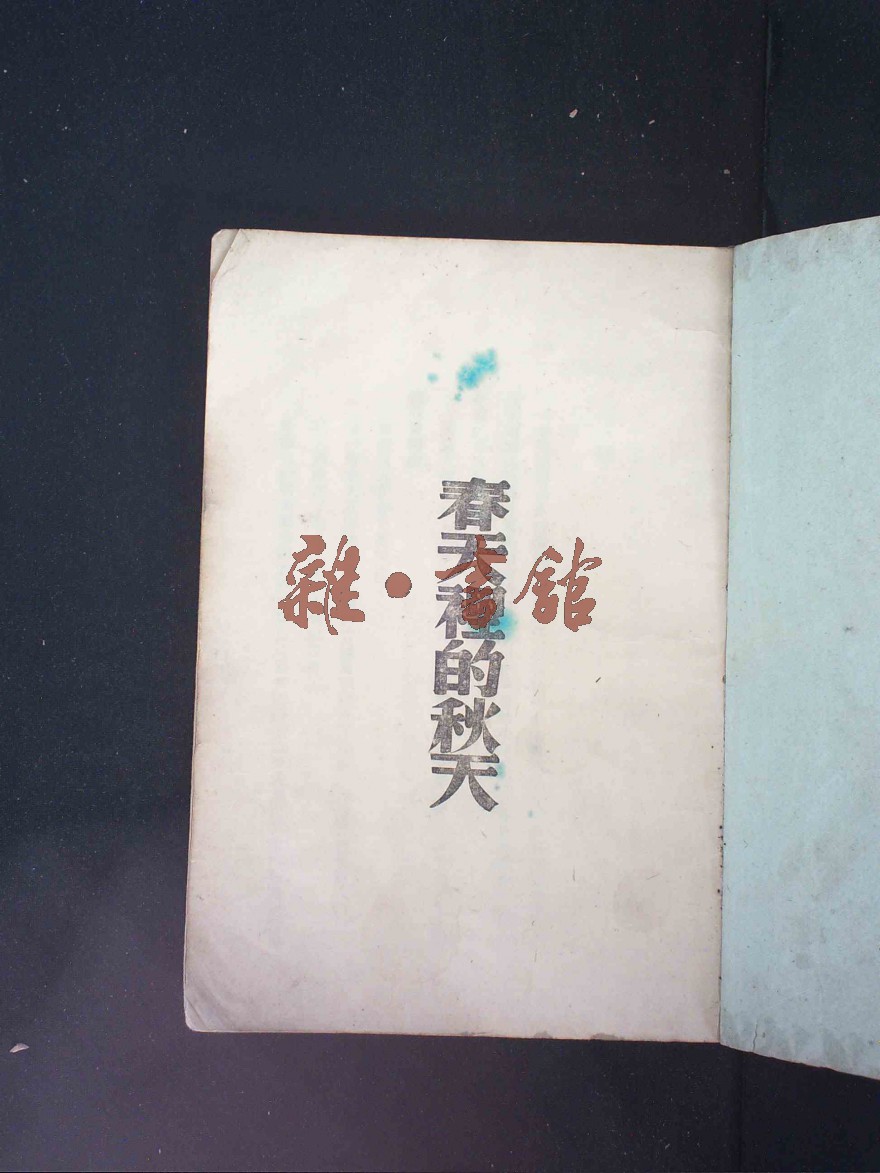 春天裡的秋天
雜·書館